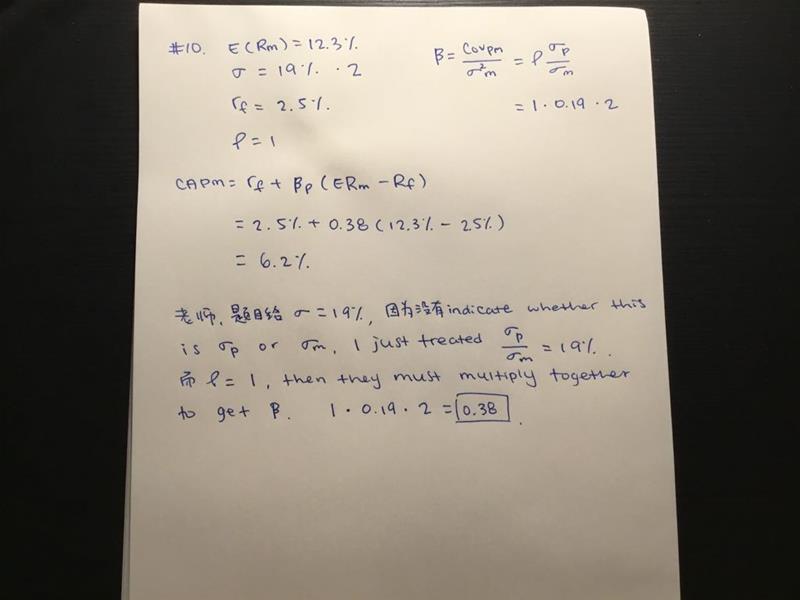 #10. E(Rm) = 12.3%
σ = 19% · 2
rf = 2.5%.
ρ = 1
β = Covpm/σ²m = ρ σp/σm
= 1 · 0.19 · 2
CAPM = rf + βp (ERm - Rf)
= 2.5% + 0.38 (12.3% - 25%)
= 6.2%.
老师，题目给 σ = 19%，因为没有 indicate whether this
is σp or σm, I just treated σp/σm = 19%.
而 ρ = 1, then they must multiply together
to get β. 1 · 0.19 · 2 = 0.38.